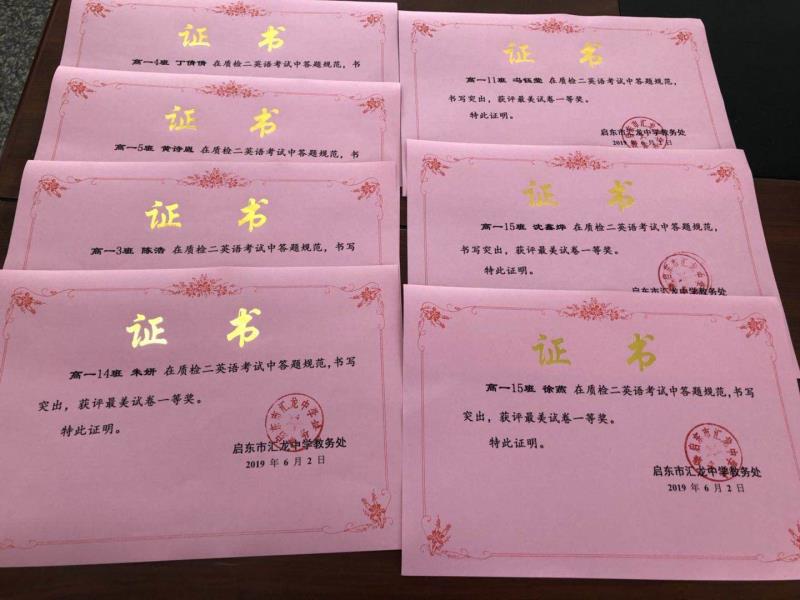 证 书
高一4班 丁倩倩 在质检二英语考试中答题规范，书
证 书
高一5班 黄诗庭 在质检二英语考试中答题规范，书
证 书
高一3班 陈浩 在质检二英语考试中答题规范，书写
证 书
高一14班 朱妍 在质检二英语考试中答题规范，书写
突出，获评最美试卷一等奖。
特此证明。
启东市汇龙中学教务处
2019 年 6 月 2 日
证 书
高一11班 冯钰莹 在质检二英语考试中答题规范，
书写突出，获评最美试卷一等奖。
特此证明。
启东市汇龙中学教务处
2019 年 6 月 2 日
证 书
高一15班 沈鑫烨 在质检二英语考试中答题规范，
书写突出，获评最美试卷一等奖。
特此证明。
启东市汇龙中学教务处
证 书
高一15班 徐燕 在质检二英语考试中答题规范，书写
突出，获评最美试卷一等奖。
特此证明。
启东市汇龙中学教务处
2019 年 6 月 2 日